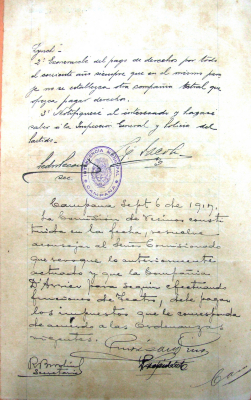 2º Exonerarle del pago de derechos por todo
el corriente año siempre que en el mismo
no se establezca otra compañia teatral que
ofrezca pagar derechos.
3º Notifiquese al interesado y hagase
saber a la Inspeccion General y Policia del
Partido.
INTENDENCIA MUNICIPAL
CAMPANA
Sec
Campana Sept 6 de 1917.
La Comision de Vecinos, consti-
tuida en la fecha, resuelve
aconsejar al Señor Comisionado
que revoque lo anteriormente
actuado y que la Compañia
para seguir efectuando
funciones de Teatro, debe pagar
los impuestos que le corresponda
de acuerdo a las Ordenanzas
vigentes.
Presidente
Secretario